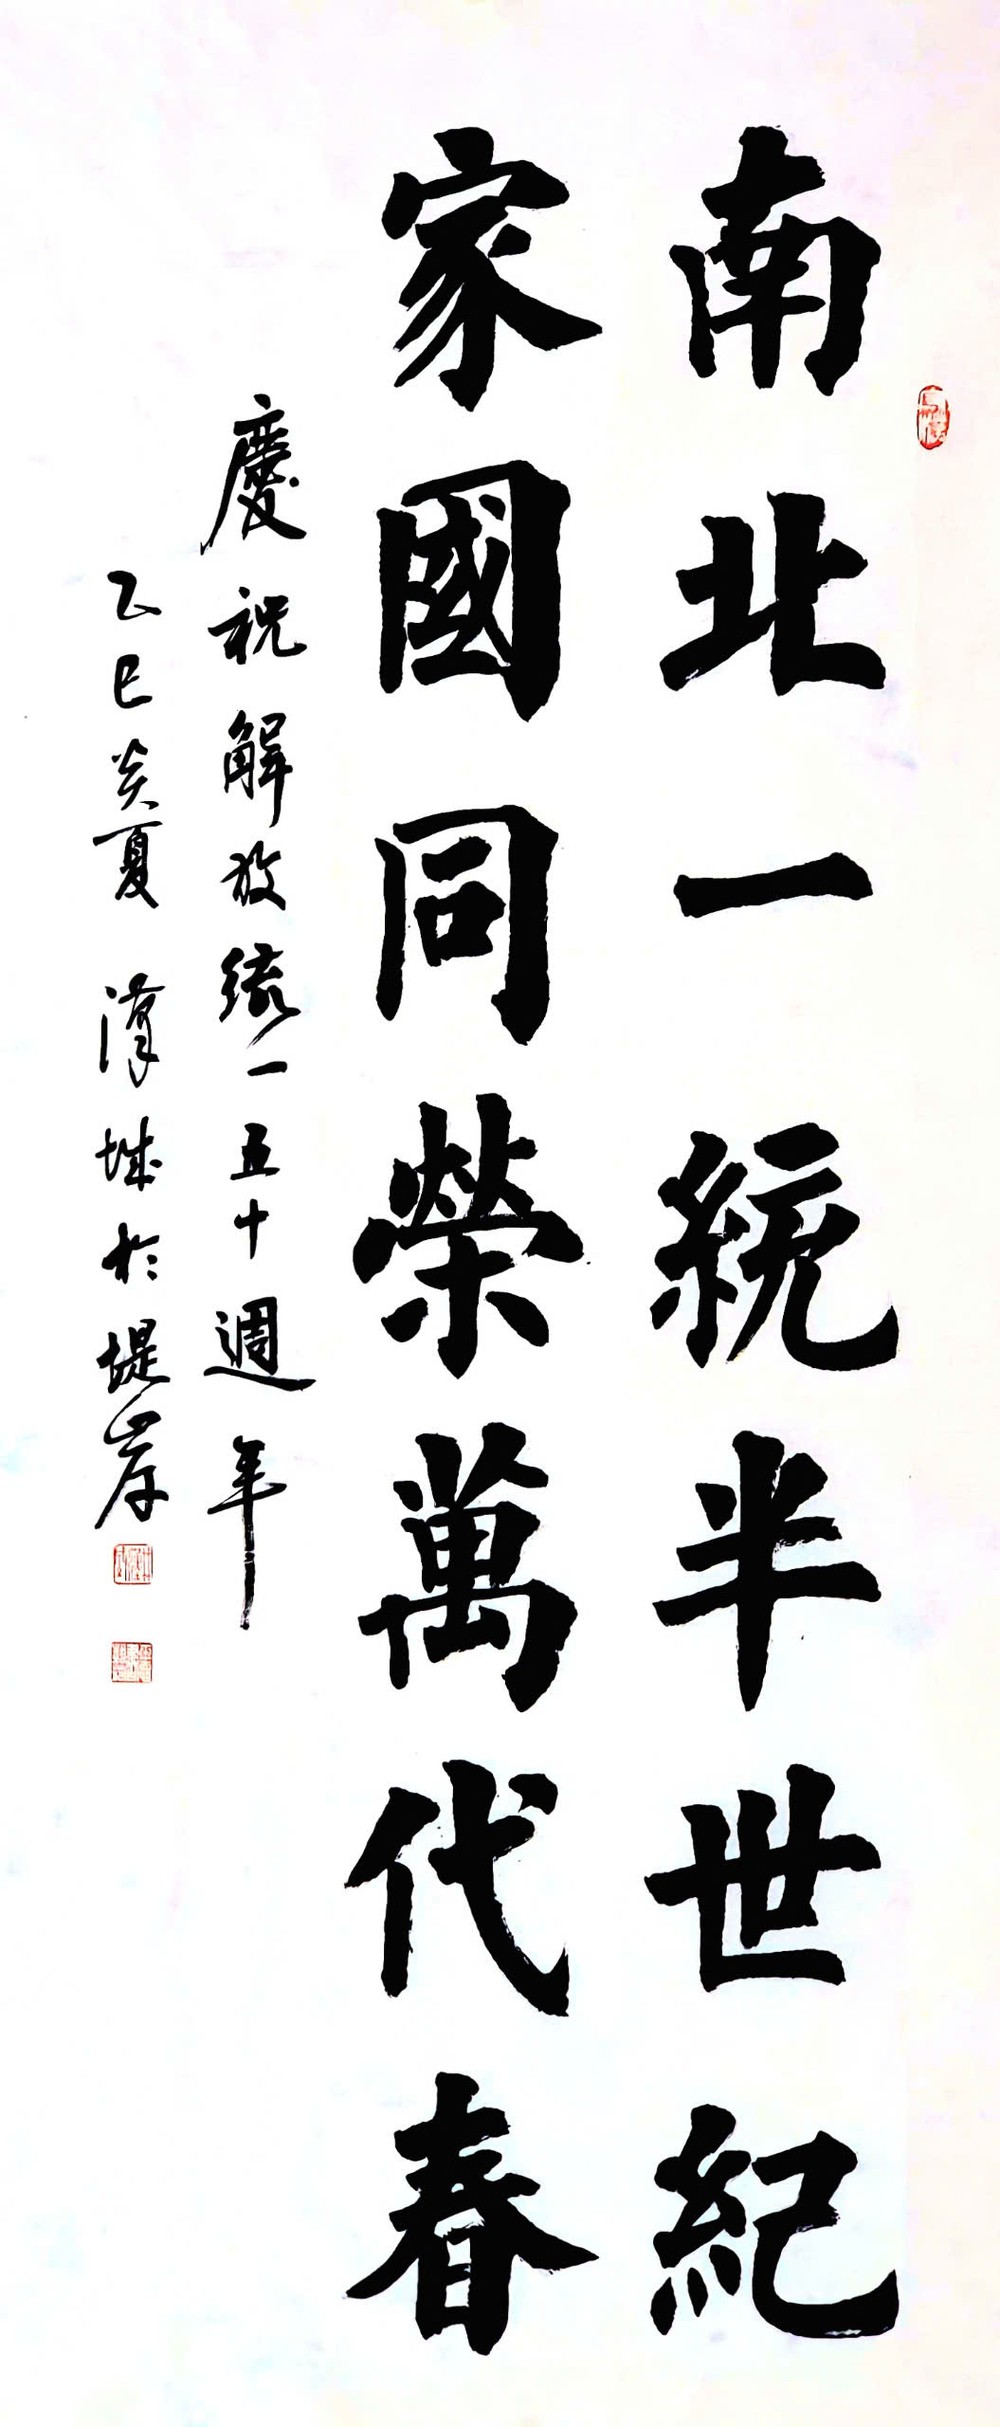 南北一統半世紀
家國同榮萬代春
慶祝解放統一五十週年
乙巳炎夏 漢城於堤岸